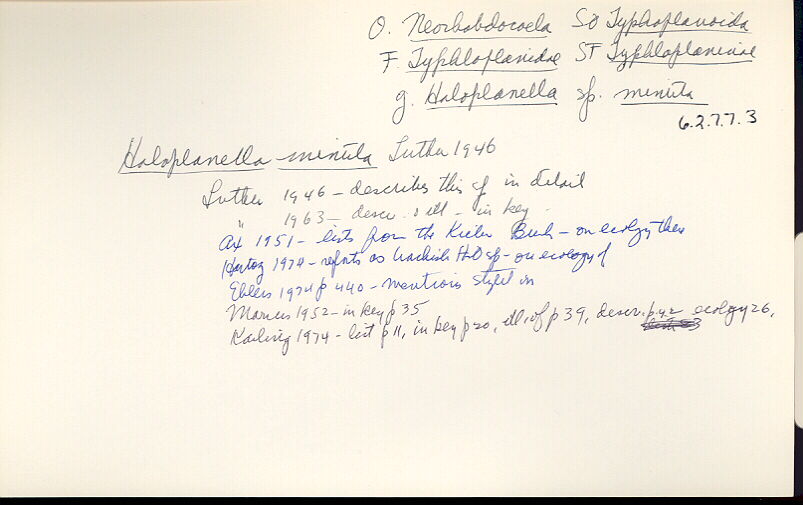 O. Neorhabdocoela SO Typhloplanoida
F. Typhloplanidae SF Typhloplaninae
g. Haloplanella sp. minuta
6.2.7.7.3
Haloplanella minuta Luther 1946
Luther 1946 - describes this sp in detail
" 1963 - descr. & ill - in key
Ax 1951 - lists from the Kieler Buch - on ecology there
Hartog 1974 - reports as brackish H2O sp - on ecology of
Ehlers 1974 p 440 - mentions stylet in
Marcus 1952 - in key p 35
Karling 1974 - list p 11, in key p 20, ill. of p 39, descr. p. 42 ecology 26,